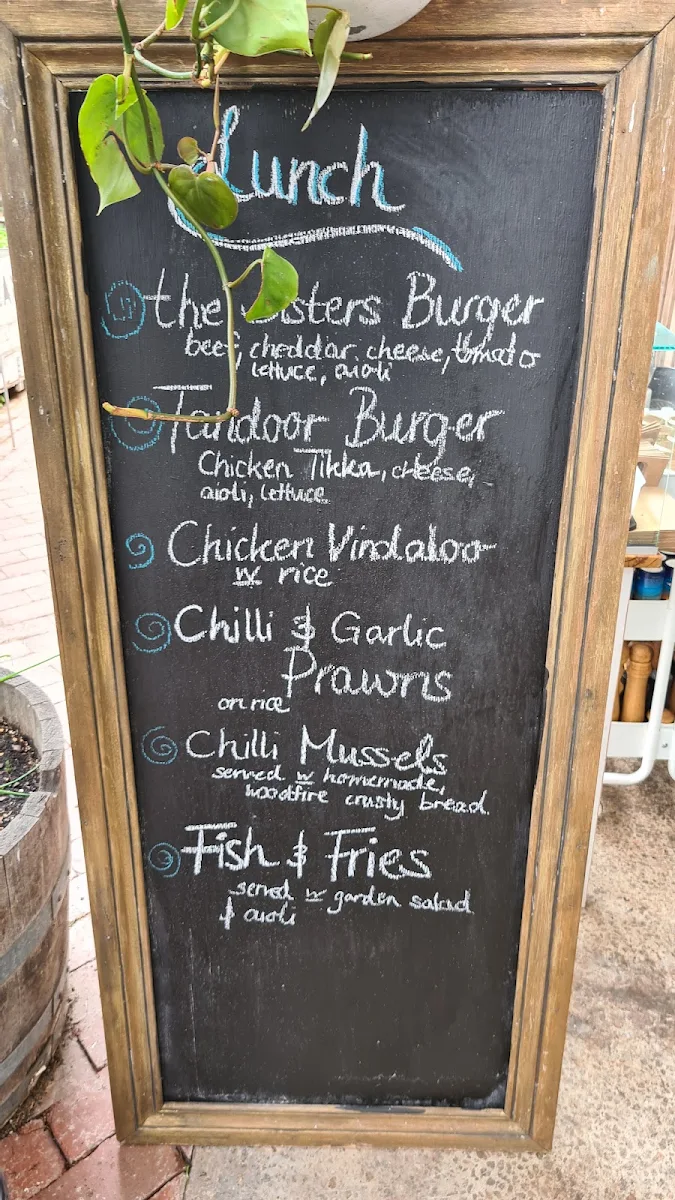 Lunch
the Sisters Burger
beef, cheddar cheese, tomato
lettuce, aioli
Tandoor Burger
Chicken Tikka, cheese,
aioli, lettuce
Chicken Vindaloo
w rice
Chilli & Garlic
Prawns
on rice
Chilli Mussels
served w homemade,
woodfire crusty bread.
Fish & Fries
served w garden salad
& aioli